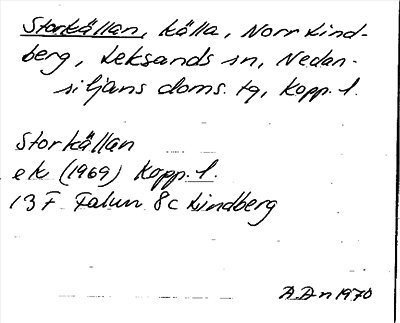 Storkällan, källa, Norr Lind-
berg, Leksands sn, Nedan-
siljans doms. tg, Kopp. l.
Storkällan
ek (1969) Kopp. l.
13 F Falun 8c Lindberg
A.A-n 1970